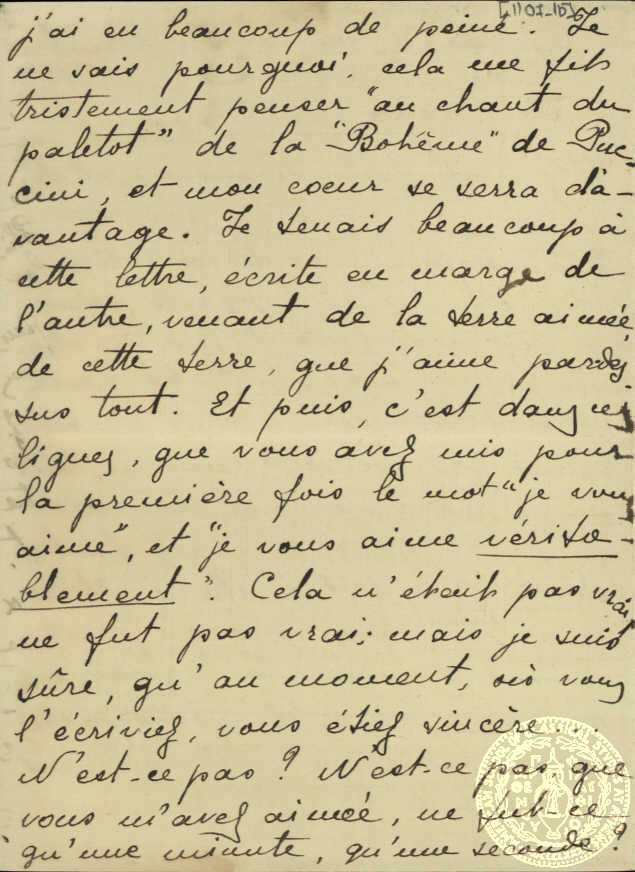 [1107-15]
j'ai eu beaucoup de peine. Je
ne sais pourquoi, cela me fit
tristement penser "au chant du
paletot" de la "Bohême" de Puc-
cini, et mon coeur se serra dà-
vantage. Je tenais beaucoup à
cette lettre, écrite en marge de
l'autre, venant de la terre aimée,
de cette terre, que j'aime pardes
sus tout. Et puis, c'est dans ces
lignes, que vous avez mis pour
la première fois le mot "je vous
aime", et "je vous aime vérita-
blement". Cela n'était pas vrai
ne fut pas vrai; mais je suis
sûre, qu'au moment, où vous
l'écriviez, vous étiez sincère...
N'est-ce pas? N'est-ce pas, que
vous m'avez aimée, ne fut-ce
qu'une minute, qu'une seconde?